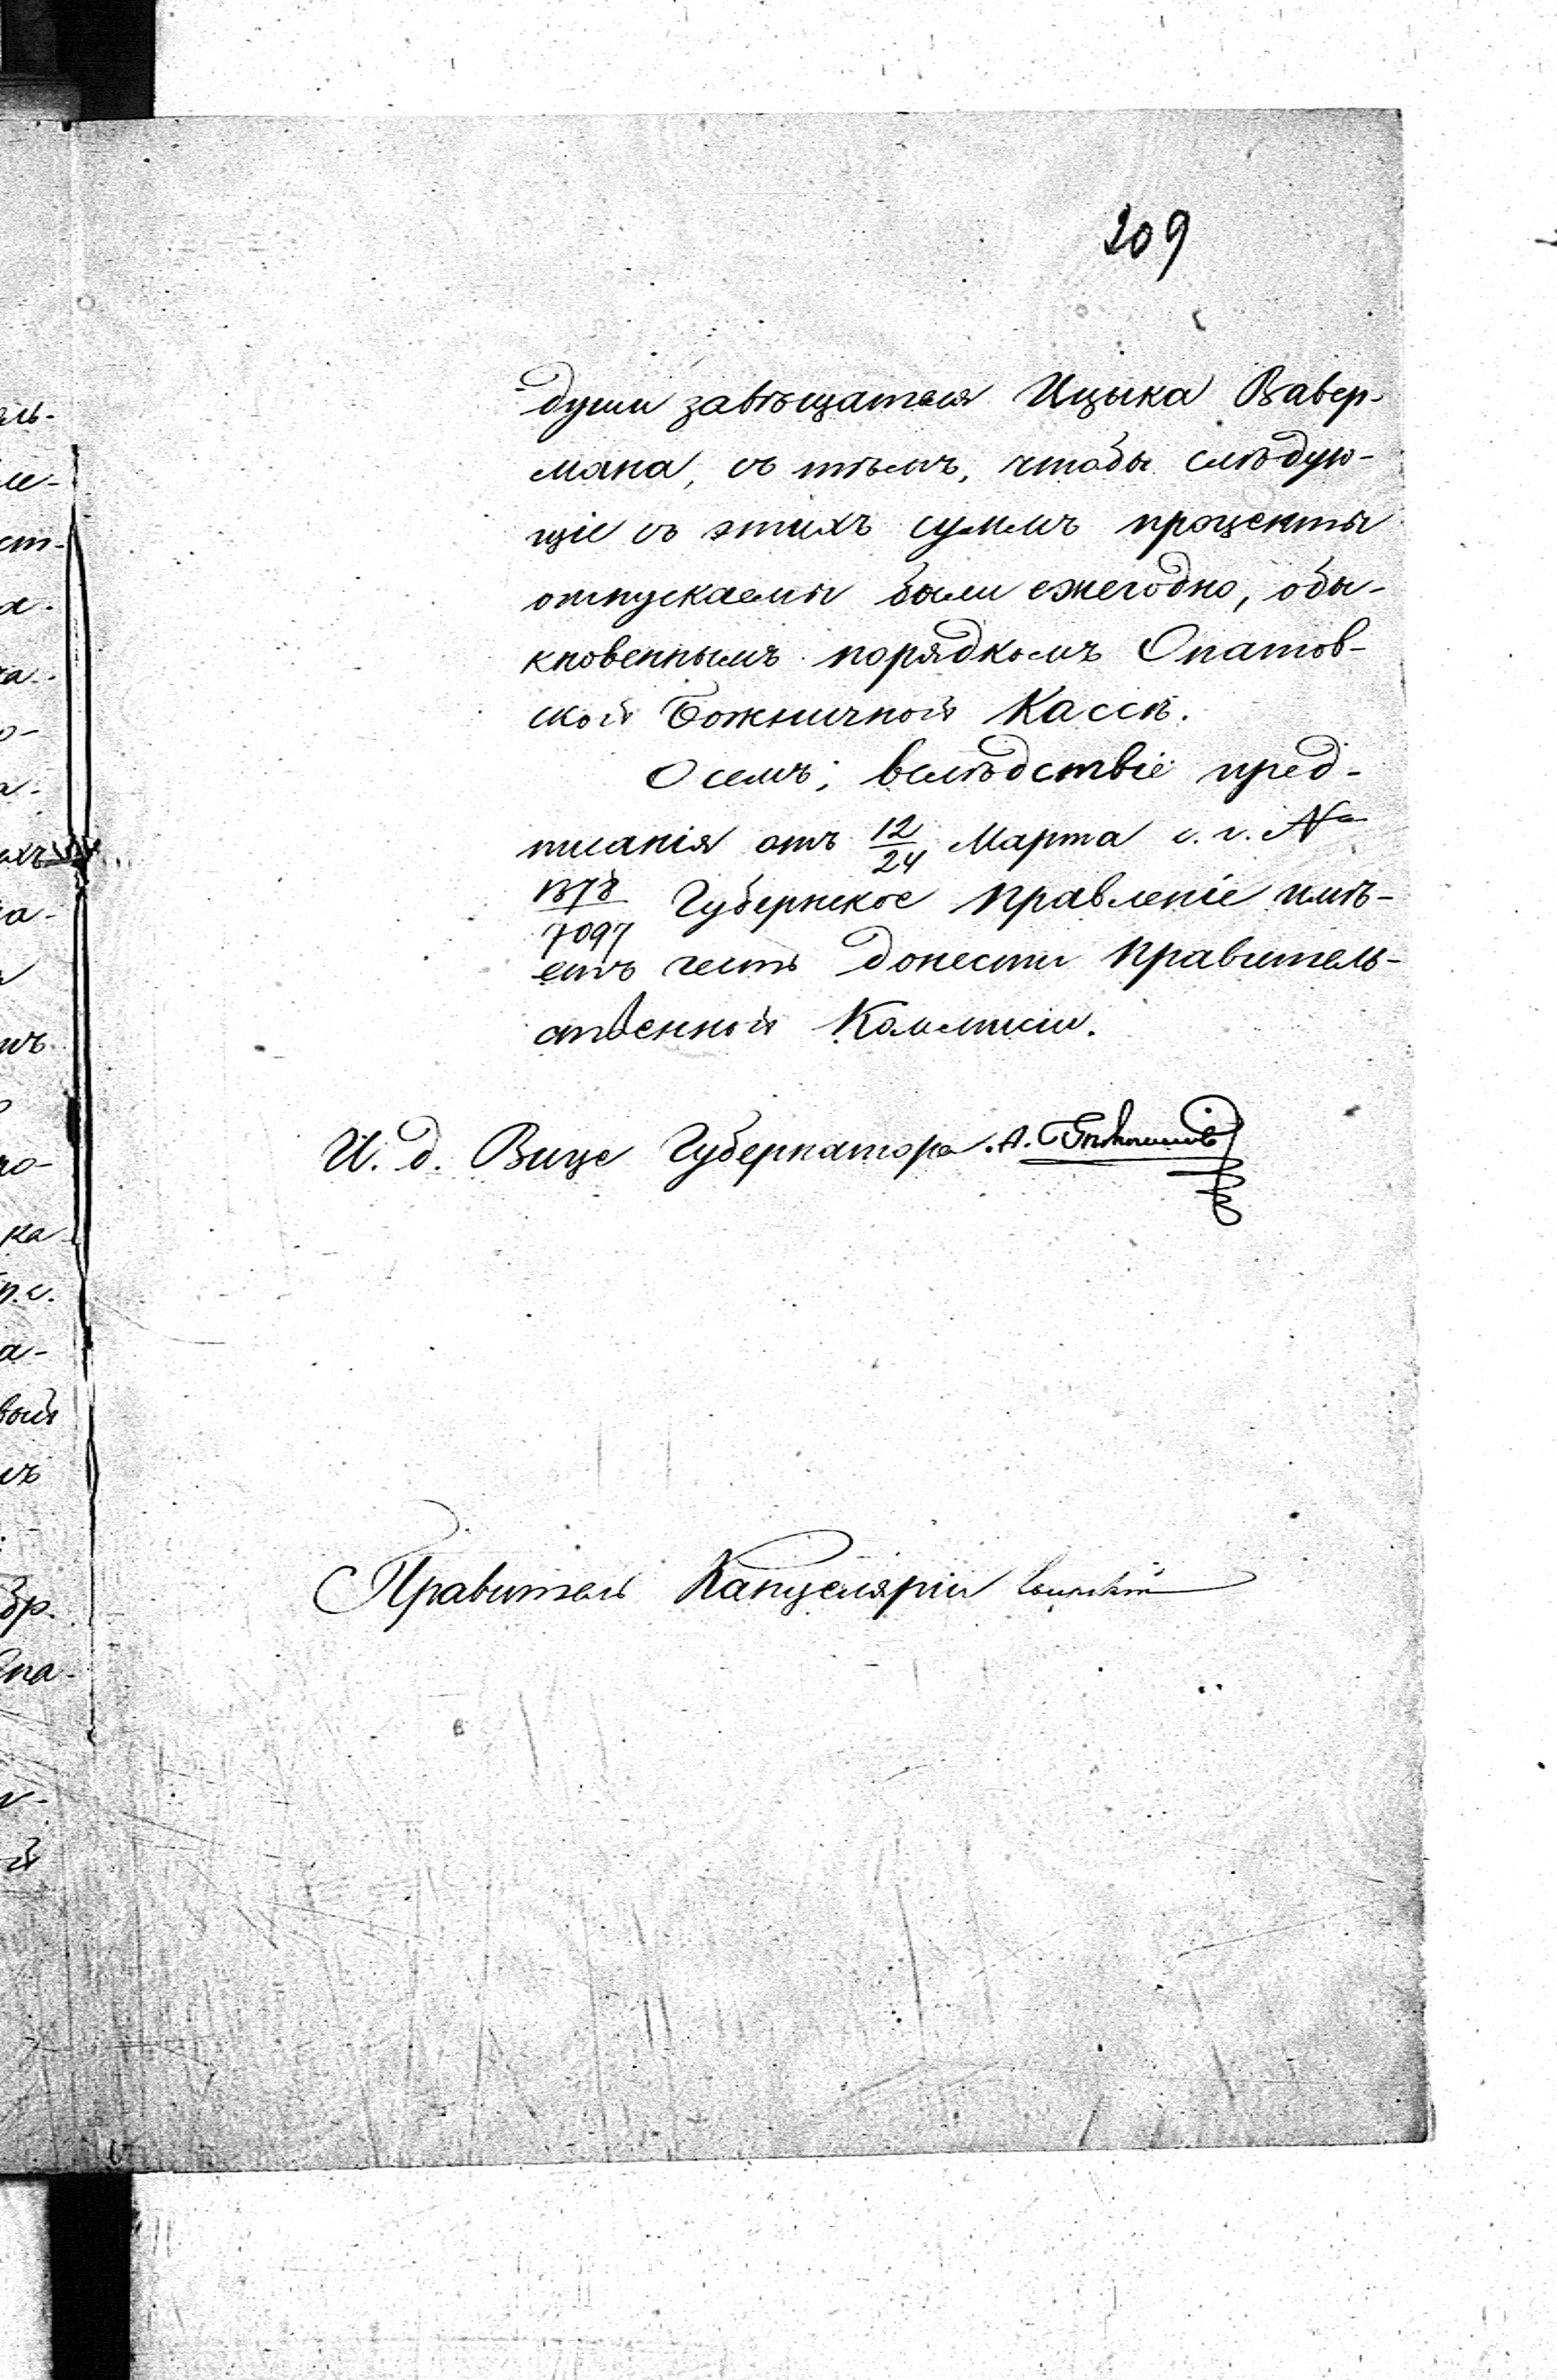 209
души завѣщателя Ицыка Вавер-
мана, съ тѣмъ, чтобы слѣдую-
щіе съ этихъ суммъ проценты
отпускаемы были ежегодно, обы-
кновеннымъ порядкомъ Опатов-
ской Божничной Кассѣ.
О семъ, вслѣдствіе пред-
писанія отъ 12/24 Марта с. г. №
1378/7097 Губернское Правленіе имѣ-
етъ честь донести Правитель-
ственной Коммисіи.
И. д. Вице Губернатора А.
Правитель Канцеляріи